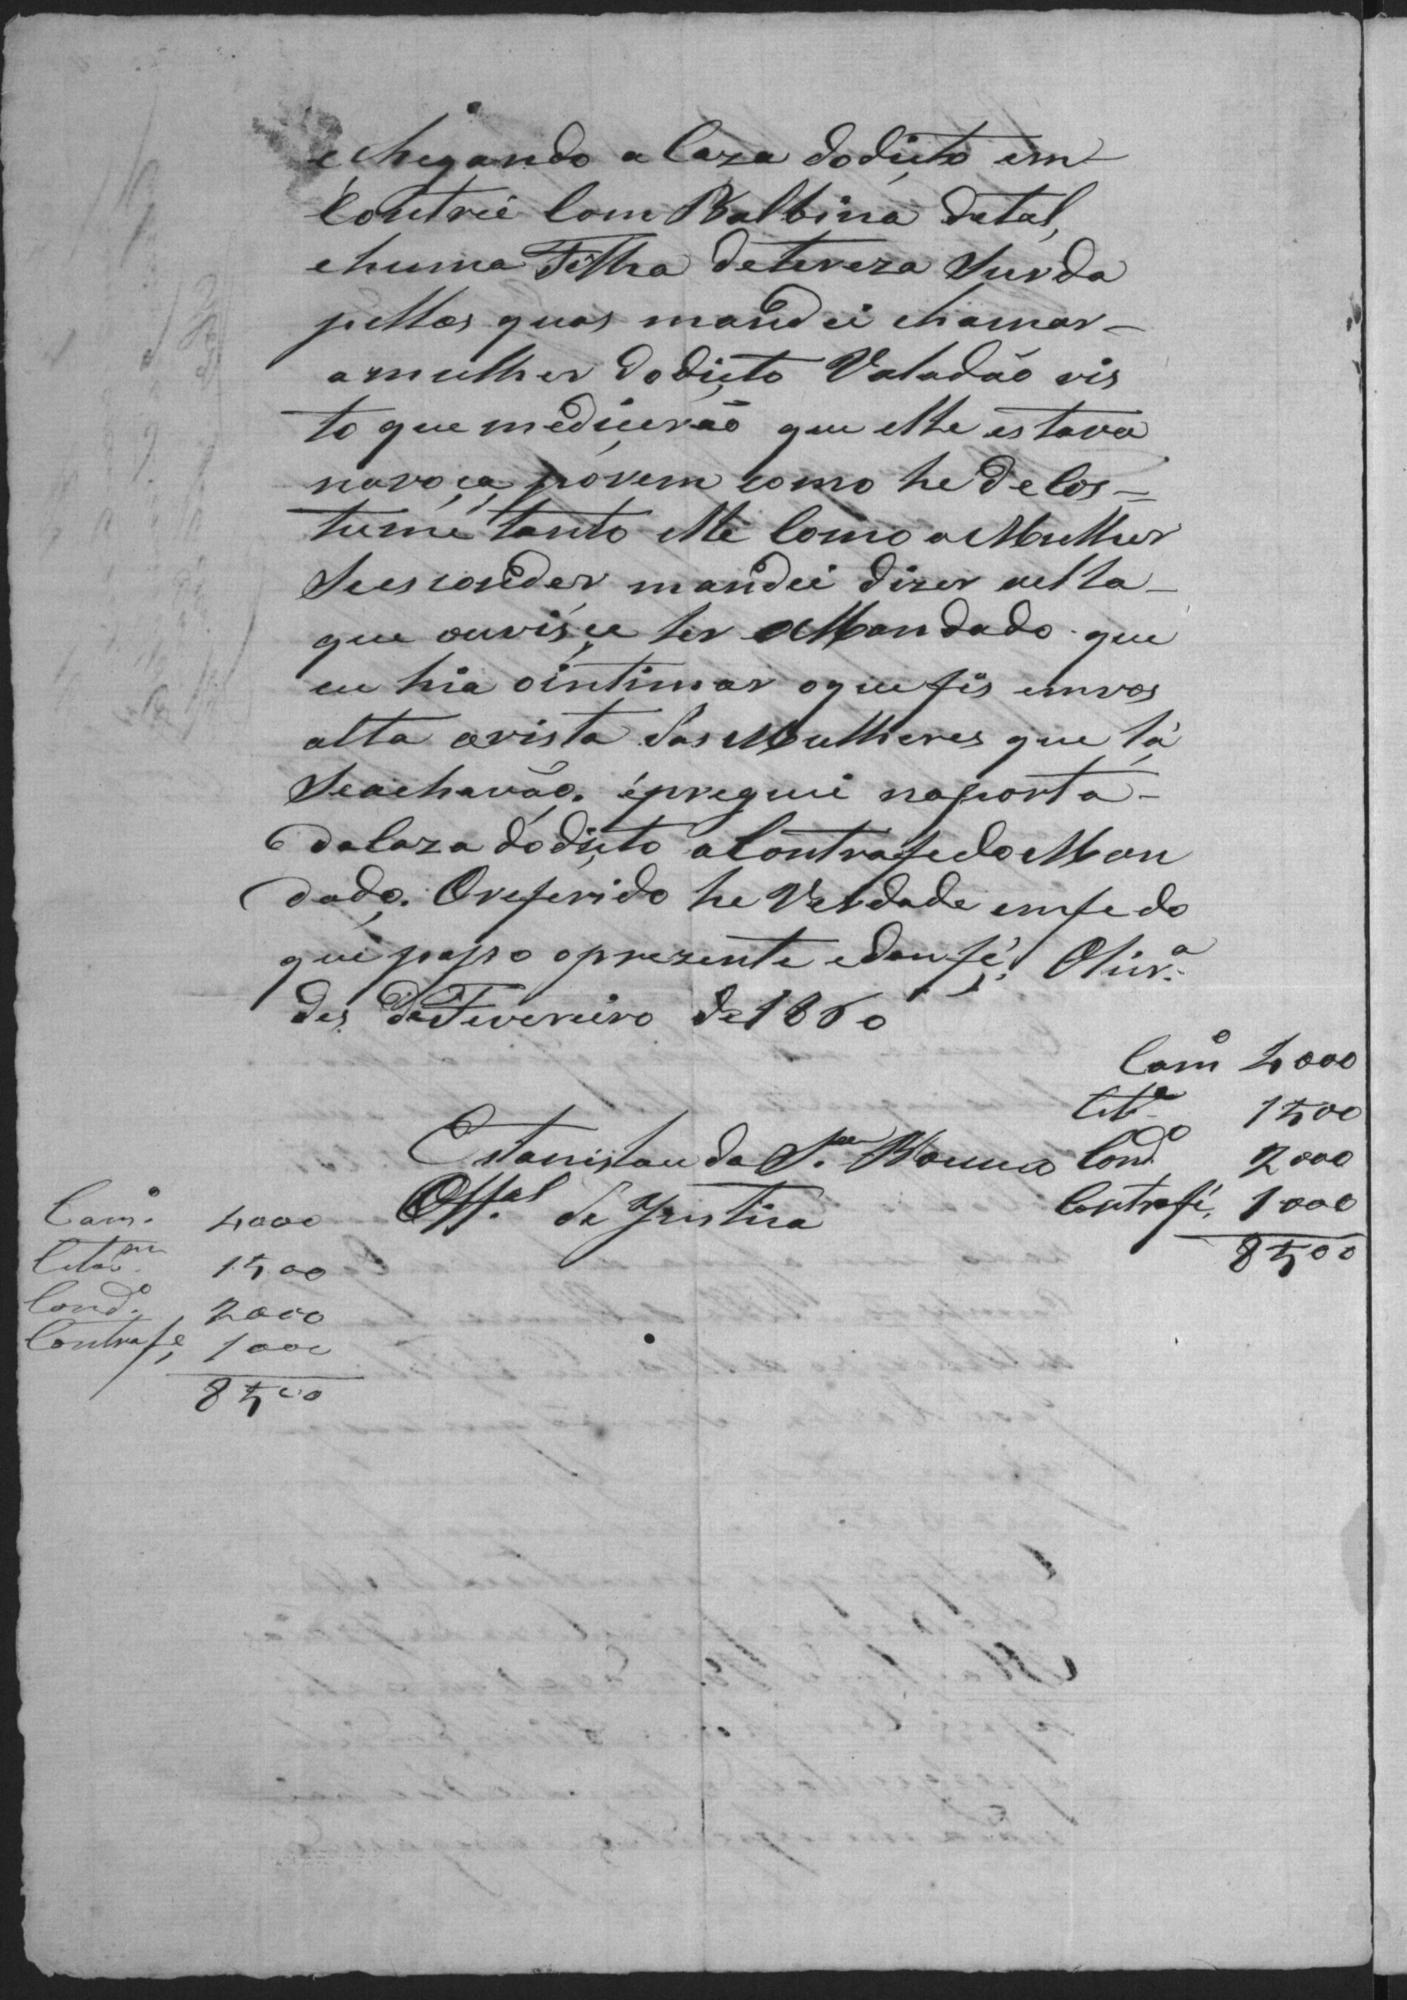 e chegando a Caza dodicto em-
Contrei Com Balbina detal,
ehuma Filha detereza Surda
pellas quas mandei chamar-
amulher dodicto Valadão vis
to que mediçerão que elle estava
naroça, pórem como he deCos=
tume tanto elle Como a Mulher
Seesconder mandei dizer aella-
que ouvisçe ler o Mandado que
eu hia ointimar oquefis emvos
alta avista das Mulheres que lá
Seachavão. épreguei naporta-
daCaza dodicto aContrafedo Man
dado. Oreferido he Verdade emfedo
que passo oprezente edoufé, Olivrª
des, deFevereiro de 1860
Camº 4000
Citª 1500
Estanislau da Sª Condº 2000
Offal de Justiça Contrafé, 1000
8500
Camº 4000
Citam 1500
Condº 2000
Contrafe, 1000
8500